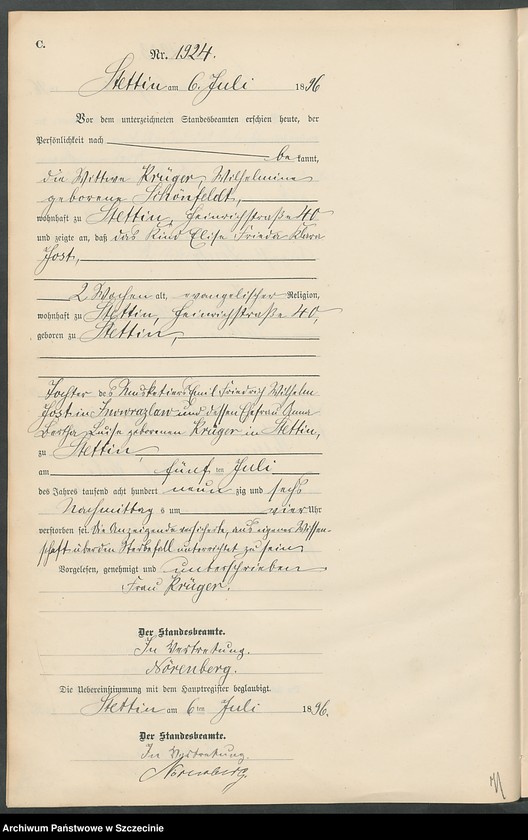 C.
Nr. 1924.
Stettin am 6. Juli 1896
Vor dem unterzeichneten Standesbeamten erschien heute, der
Persönlichkeit nach
be kannt,
die Wittwe Krüger, Wilhelmine
geborene Schönfeldt,
wohnhaft zu Stettin, Heinrichstraße 40
und zeigte an, daß das Kind Elise Frieda Klara
Jost,
2 Wochen alt, evangelischer Religion,
wohnhaft zu Stettin, Heinrichstraße 40,
geboren zu Stettin,
Tochter des Musketiers Emil Friedrich Wilhelm
Jost in Inowrazlaw und dessen Ehefrau Anna
Bertha Luise geborenen Krüger in Stettin,
zu Stettin
am fünf ten Juli
des Jahres tausend acht hundert neun zig und sechs
Nachmittag s um vier Uhr
verstorben sei. Die Anzeigende versicherte, aus eigener Wissen-
schaft über den Sterbefall unterrichtet zu sein
Vorgelesen, genehmigt und unterschrieben
Frau Krüger.
Der Standesbeamte.
In Vertretung.
Nörenberg.
Die Uebereinstimmung mit dem Hauptregister beglaubigt.
Stettin am 6 ten Juli 1896.
Der Standesbeamte.
In Vertretung
Nörenberg.
Archiwum Państwowe w Szczecinie